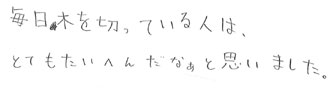 毎日木を切っている人は、
とてもたいへんだなぁと思いました。